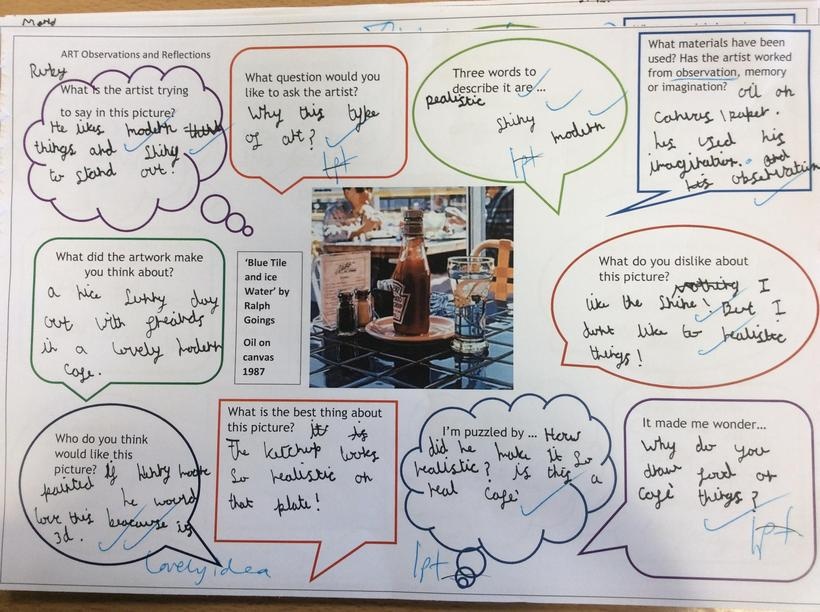 ART Observations and Reflections
Ruby
What is the artist trying
to say in this picture?
He likes modern
things and shiny
to stand out!
What question would you
like to ask the artist?
Why this type
of art?
1pt
Three words to
describe it are ...
realistic
shiny
modern
1pt
What materials have been
used? Has the artist worked
from observation, memory
or imagination? oil on
canvas / paper.
has used his
imagination. and
his observation
What did the artwork make
you think about?
a nice sunny day
out with freinds
in a lovely modern
cafe.
'Blue Tile
and ice
Water' by
Ralph
Goings
Oil on
canvas
1987
What do you dislike about
this picture? nothing I
like the shine! But I
dont like to realistic
things!
Who do you think
would like this
picture? If
painted he would
love this beacause is
3d.
Lovely idea
What is the best thing about
this picture? it is
The ketchup looks
so realistic on
that plate!
I'm puzzled by ... How
did he make it so
realistic? is this a
real cafe
1pt
It made me wonder...
Why do you
draw food or
cafe things?
1pt